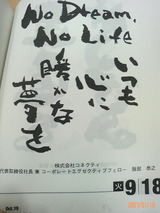 No Dream,
No Life
いつも
心に
暖かな
夢を
株式会社コネクティ
代表取締役社長 兼 コーポレートエグゼクティブフェロー 服部 恭之
火 9/18